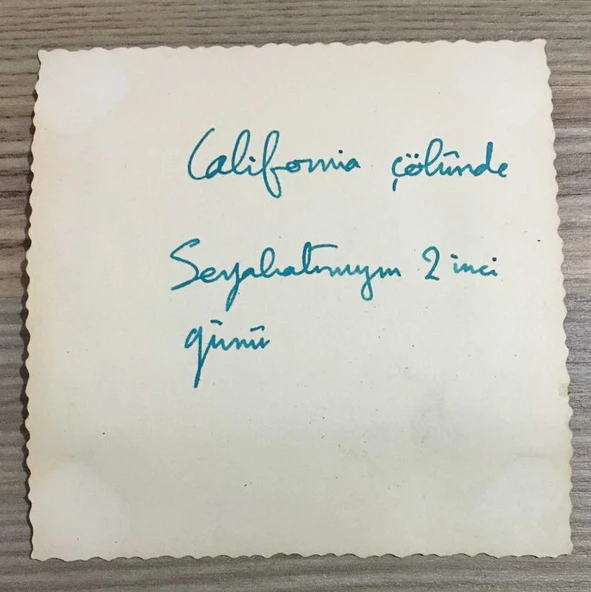 California çölünde
Seyahatımın 2 inci
günü